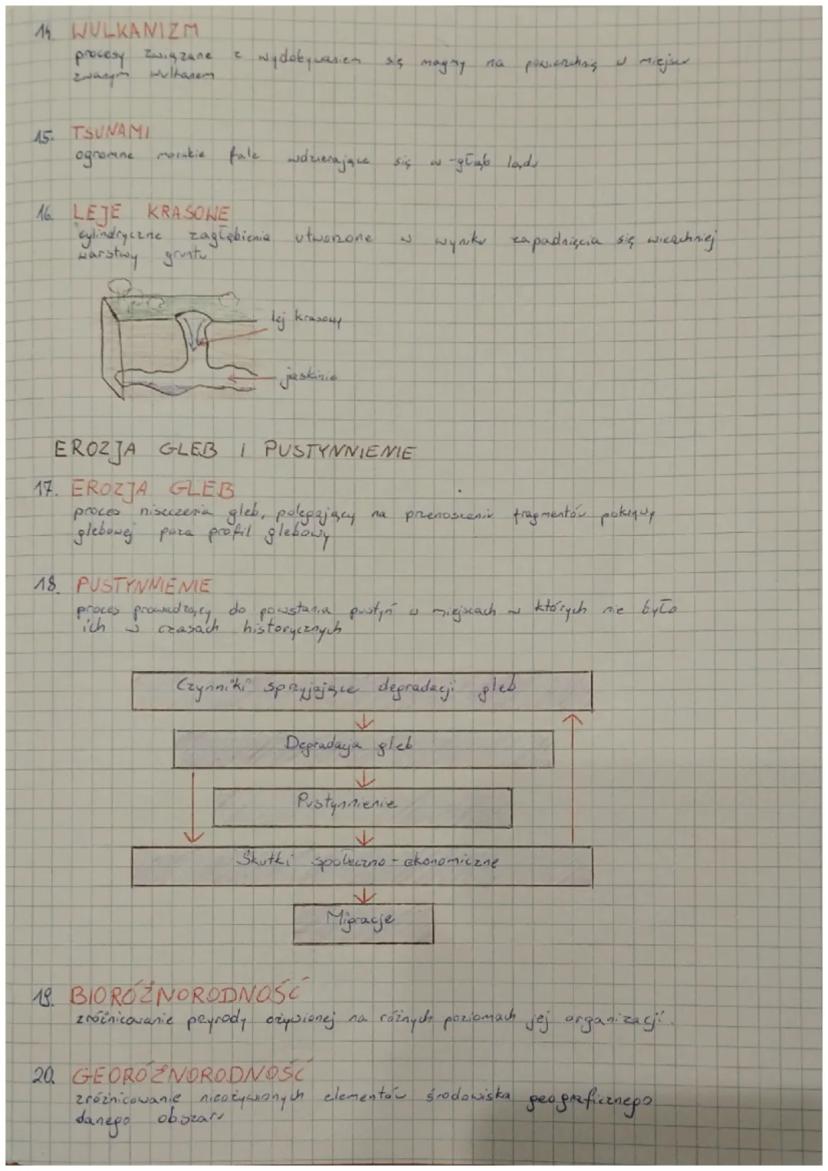 14. WULKANIZM
procesy związane z wydobywaniem się magmy na powierzchnię w miejscu
zwanym wulkanem
15. TSUNAMI
ogromne morskie fale wdzierające się w głąb lądu
16. LEJE KRASOWE
cylindryczne zagłębienia utworzone w wyniku zapadnięcia się wierzchniej
warstwy gruntu
lej krasowy
jaskinia
EROZJA GLEB I PUSTYNNIENIE
17. EROZJA GLEB
proces niszczenia gleb, polegający na przenoszeniu fragmentów pokrywy
glebowej poza profil glebowy
18. PUSTYNNIENIE
proces prowadzący do powstania pustyń w miejscach w których nie było
ich w czasach historycznych
Czynniki sprzyjające degradacji gleb
Degradacja gleb
Pustynnienie
Skutki społeczno-ekonomiczne
Migracje
19. BIORÓŻNORODNOŚĆ
zróżnicowanie przyrody ożywionej na różnych poziomach jej organizacji.
20. GEORÓŻNORODNOŚĆ
zróżnicowanie nieożywionych elementów środowiska geograficznego
danego obszaru